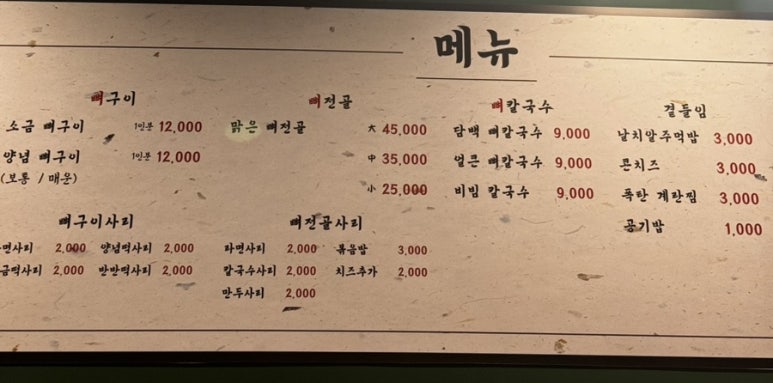 메뉴
뼈구이
소금 뼈구이 1인분 12,000
양념 뼈구이 1인분 12,000
(보통 / 매운)
뼈전골
맑은 뼈전골 大 45,000
中 35,000
小 25,000
뼈칼국수
담백 뼈칼국수 9,000
얼큰 뼈칼국수 9,000
비빔 칼국수 9,000
곁들임
날치알주먹밥 3,000
콘치즈 3,000
폭탄 계란찜 3,000
공기밥 1,000
뼈구이사리
면사리 2,000 양념떡사리 2,000
금떡사리 2,000 반반떡사리 2,000
뼈전골사리
라면사리 2,000 볶음밥 3,000
칼국수사리 2,000 치즈추가 2,000
만두사리 2,000